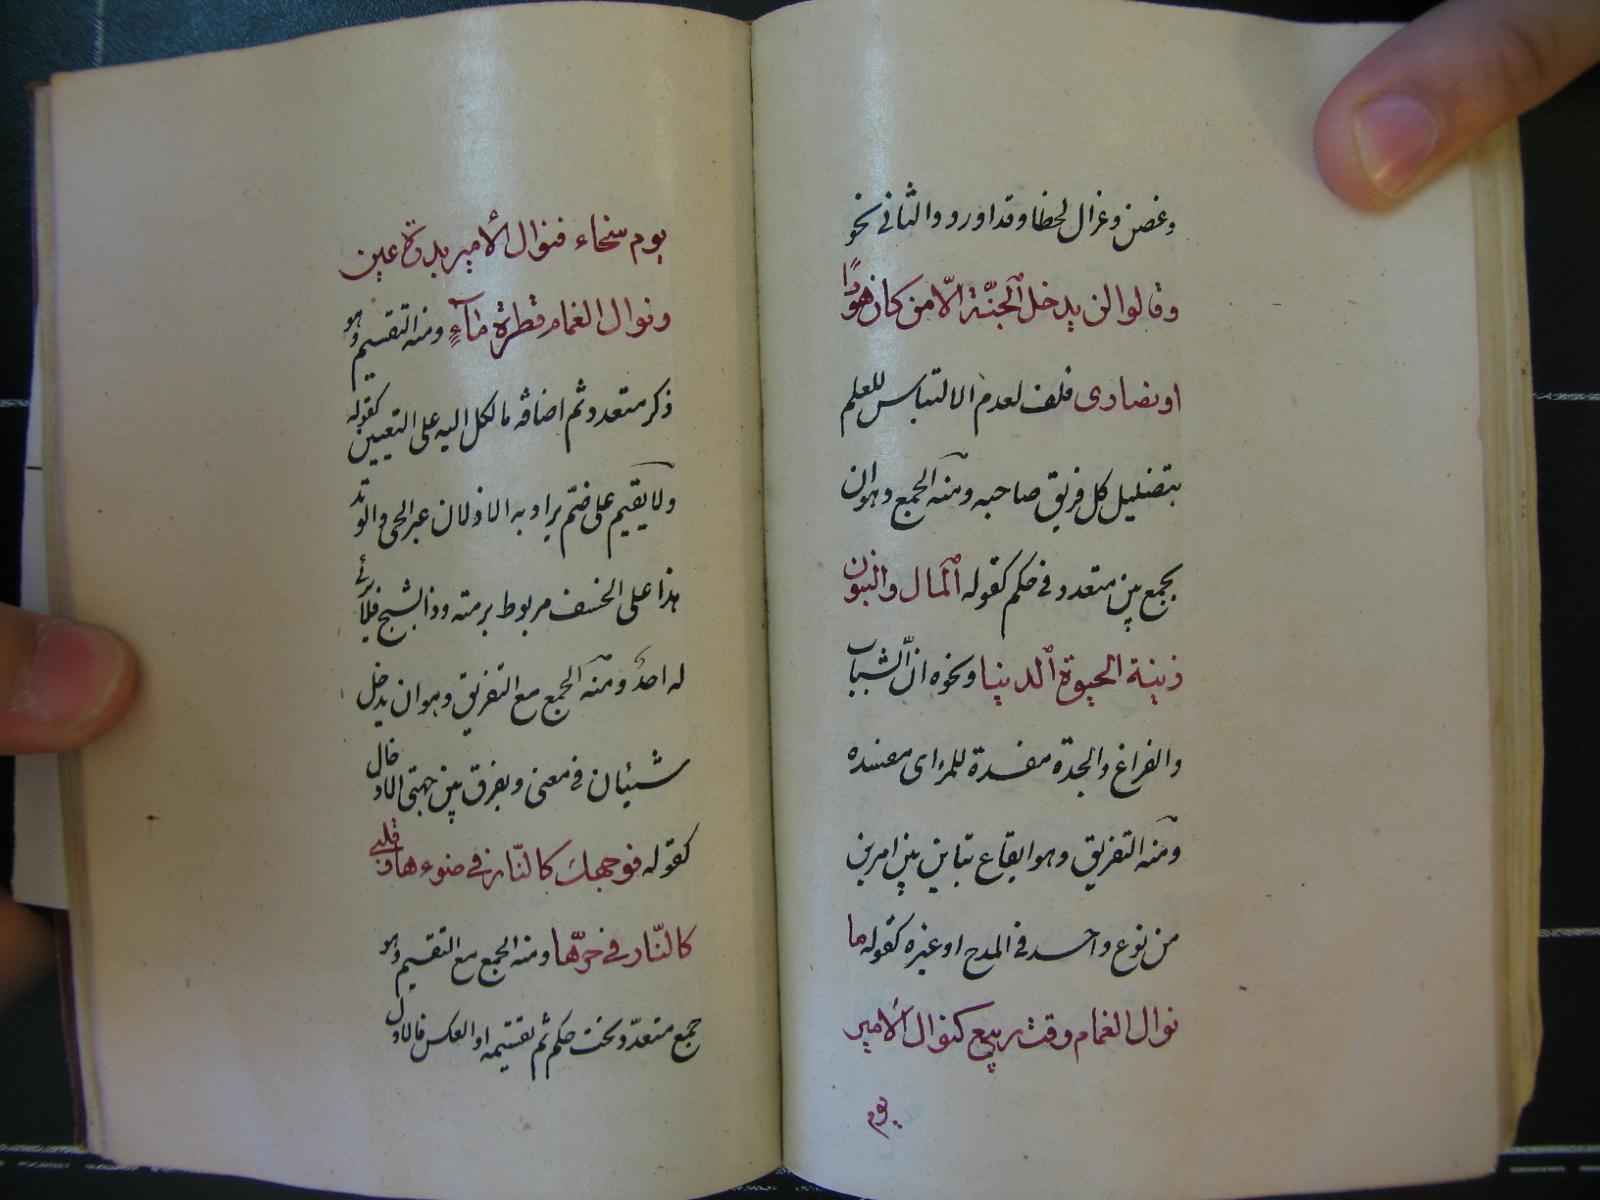 وغصن وغزال لحظا وقدا وردد والثاني نحو
وقالوا لن يدخل الجنّة الّا من كان هودًا
او نصارى فلف لعدم الالتباس للعلم
بتضليل كل فريق صاحبه ومنه الجمع وهو ان
يجمع بين متعدد في حكم كقوله المال والبنون
زينة الحيوة الدنيا ونحوه انّ الشباب
والفراغ والجدة مفسدة للمرء اى مفسده
ومنه التفريق وهو ايقاع تباين بين امرين
من نوع واحد في المدح او غيره كقوله ما
نوال الغمام وقت ربيع كنوال الامير
يوم
يوم سخاء فنوال الأمير بدرة عين
ونوال الغمام قطرة مآءٍ ومنه التقسيم وهو
ذكر متعدد ثم اضافة ما لكل اليه على التعيين كقوله
ولا يقيم على ضيم يراد به الا الاذلان عير الحى والوتد
هذا على الخسف مربوط برمته وذا يشج فلا يرثى
له احدٌ ومنه الجمع مع التفريق وهو ان يدخل
شيئان في معنى ويفرق بين جهتى الادخال
كقوله فوجهك كالنّار في ضوءها وقلبي
كالنّار في حرّها ومنه الجمع مع التقسيم وهو
جمع متعدّد تحت حكم ثم تقسيمه او العكس فالاول